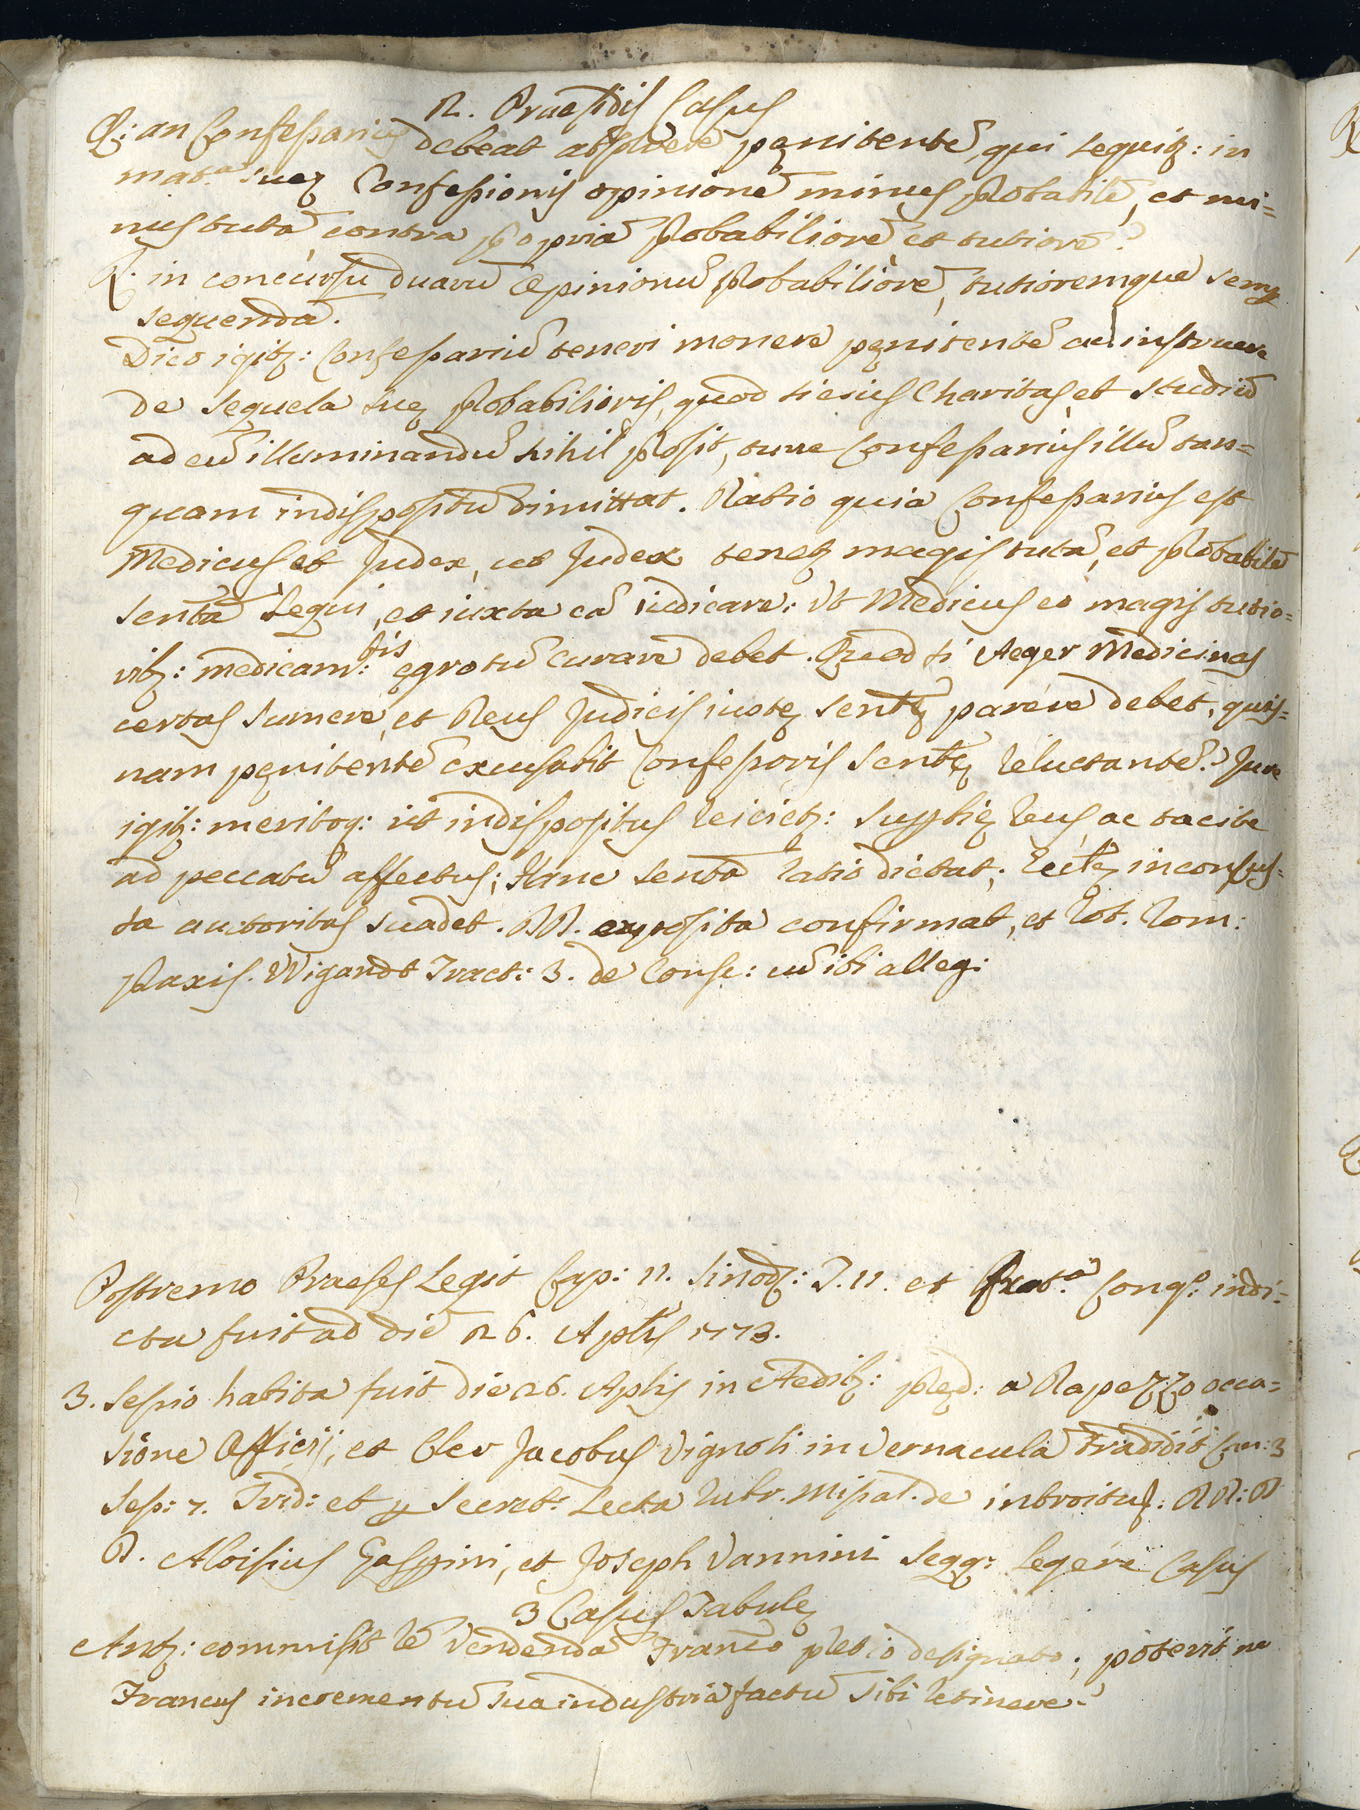 2. Praesidis Casus
Q: an Confessarius debeat absolvere pęnitentē, qui sequitʒ: in
mat.a suę Confessionis opinionē minus probabilē, et mi=
nus tutā contra propriā probabiliorē et tutiorē?
R. in concursu duarū Opinionū probabiliorē, tutioremque semp
sequendā.
Dico igitʒ: Confessariū teneri monere pęnitentē ac instruere
de sequela suę probabilioris, quod si eius Charitas, et studiū
ad eū illuminandū nihil prosit, tunc Confessarius illū tan=
quam indispositū dimittat. Ratio quia Confessarius est
Medicus et Judex, ut Judex tenetʒ magis tutā, et probabilē
sentā sequi, et iuxta eā iudicare: Ut Medicus eo magis tutio=
ribʒ: medicam:tis ęgrotū curare debet. Quod si Aeger Medicinas
certas sumere, et Reus Judicis iustę sentę parere debet, quis=
nam pęnitentē excusabit Confessoris sentę reluctantē? Jure
igitʒ: meritoq: ut indispositus reicietʒ: supplię reus, ac tacite
ad peccatū affectus; Hinc sentā ratio dictat; Eccłę inconcus=
sa auctoritas suadet. RR. exposita confirmat, et Rot. Rom:
praxis. Wigandt Tract: 3. de Consc: cū ibi alleg:
Postremo Praeses Legit Cap: 11. Sinodʒ: T. 11. et Frat.a Cong.o indi=
cta fuit ad diē 26. Aplis 1773.
3. Sessio habita fuit die 26. Aplis in Aedibʒ: pręd: a Rapezzo occa=
sione Officij; et Cler Jacobus Vignoli in vernacula Tradidit Can: 3
Sess: 7. Trid: et p Secret: Lecta Rubr. Missal. de introitu: RR: D
D. Aloisius Gaspini, et Joseph Vannini seqq: legere Casus
3 Casus Tabulę
Antʒ: commisit rē vendendā Franco pretio designato; poterit ne
Francus incrementū sua industria factū sibi retinere?